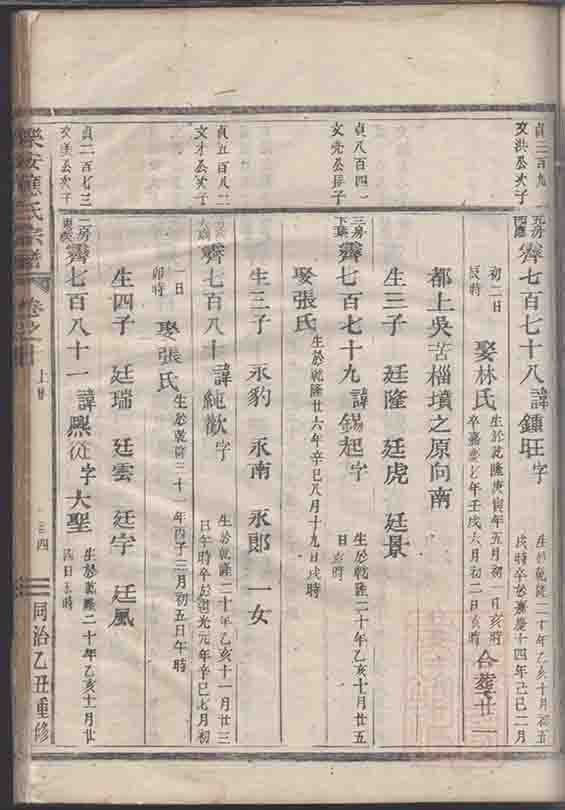 貞三百九
文洪公次子
元房
齊七百七十八 諱鍾旺 字
生於乾隆二十年乙亥十月初五
戌時卒於嘉慶十四年己巳二月
初二日
辰時
娶林氏
生於乾隆庚寅年五月初一日亥時
卒嘉慶七年壬戌六月初二日亥時
合葬廿一
都上吳苦橊墳之原向南
生三子 廷隆 廷虎 廷景
貞八百四一
三房
齊七百七十九 諱錫起 字
生於乾隆二十年乙亥十一月廿五
日亥時
娶張氏
生於乾隆廿六年辛巳八月十九日戌時
生三子 永豹 永南 永郎 一女
貞五百八二
文才公次子
齊七百八十 諱純歡 字
生於乾隆二十年乙亥十一月廿三
巳午時卒於道光元年辛巳七月初
一日
卯時
娶張氏
生於乾隆二十一年丙子三月初五日午時
生四子 廷瑞 廷雲 廷字 廷風
貞二百七三
二房
齊七百八十一 諱熙從 字大聖
生於乾隆二十年乙亥十月廿
四日
氏宗譜
卷之
上
四
同治乙丑重修